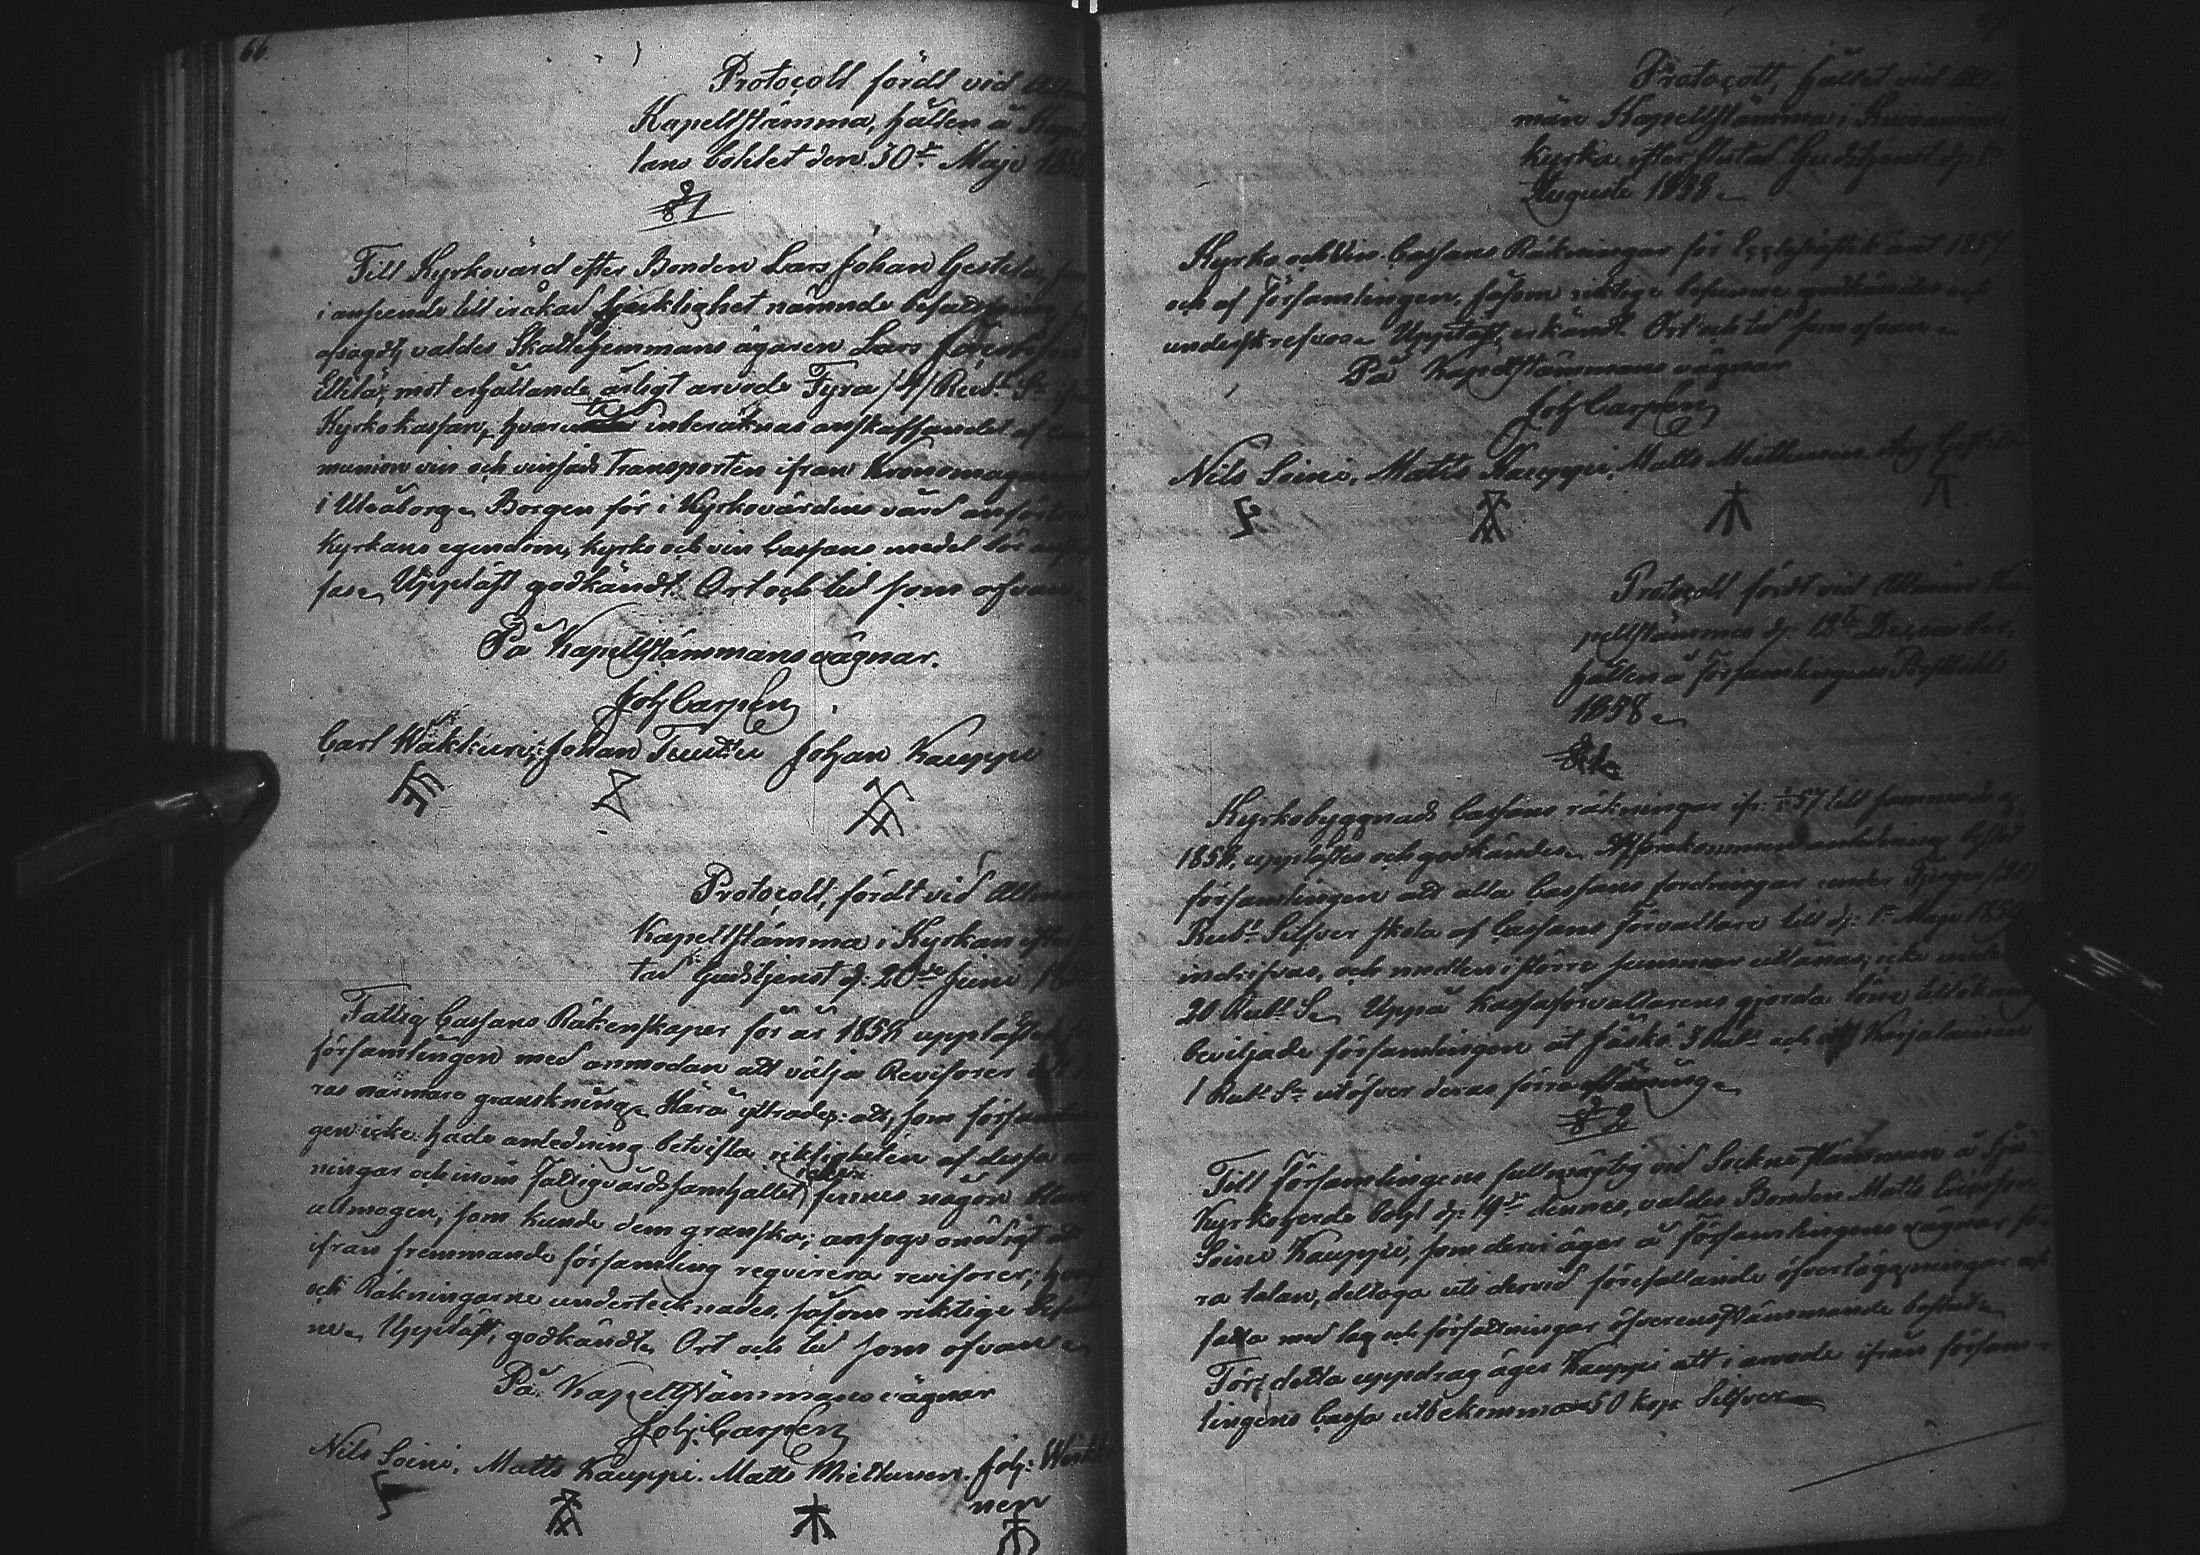 66.
Protocoll fördt vid
Kapellstämma, hållen å
lans bohlet den 30de Maji 185
§ 1
Till Kyrkovärd efter Bonden Lars Johan Gestila,
i anseende till iråkad sjuklighet nämnde befattning
afsagdt, valdes Skattehemmans ägaren Lars
mot erhållande årligt arvode Fyra /4/ Rub. Sr
Kyrkokassan, hvaruti inberäknas anskaffandet af
munion vin och vinsäds Transporten ifran Kronomagazin
i Uleåborg. Borgen för i Kyrkovärdens vård anförtrod
Kyrkans egendom, kyrko och vin Cassans medel bör
sas. Uppläst godkändt. Ort och tid som ofvan.
På Kapellstämmans vägnar.
Joh Carpen
Carl Wäkkuri, Johan Johan Kauppi
Protocoll, fördt vid Allmän
Kapellstämma i Kyrkan efter
tad Gudstjenst d: 20de Junii
Fattig Cassans Räkenskaper för år 1857 upplästes
församlingen med anmodan att välja Revisorer
ras närmare granskning. Härå yttrades: att, som försam
gen icke hade anledning betvifla riktigheten af dessa
ningar och inom Fattigvårdssamhället finnes någon
allmogen, som kunde dem granska; ansågs onödigt att
ifrån fremmande församling reqvirera revisorer;
och Räkningarne undertecknades, såsom riktige
ne. Uppläst, godkändt. Ort och tid som ofvan
På Kapellstämmans vägnar
Joh: Carpen
Nils Soini. Matts Kauppi. Matts Miettunen. Joh:
nen
Protocoll, hållet vid All-
män Kapellstämma i
Kyrka efter slutad Gudstjenst d: 1
Augusti 1858
Kyrko och Vin Cassans Räkningar för Ecclesiastik året 1857
och af Församlingen, såsom riktige befunne, godkändes och
underskrefvos. Uppläst, erkändt. Ort och tid som ofvan
På Kapellstämmans vägnar
Joh Carpen
Nils Soini. Matts Kauppi. Matts Miettunen.
Protocoll fördt vid Allmän Ka-
pellstämma d: 12te December,
hållen å Församlingens
1858
§ 1
Kyrkobyggnads Cassans räkningar ifr: 57 till samma dag
1858, upplästes och godkändes. Af förekommen anledning beslöt
församlingen att alla Cassans fordringar under Tjugu /20/
Rub. Silfver skola af Cassans Förvaltare till d: 1 Maji 1859
indrifvas, och medlen i större summor utlånas, icke under
20 Rub. S. Uppå Kassaförvaltarens gjorda löne tillökning
beviljade församlingen åt Jäskö 3 Rub. och åt Karjalainen
1 Rub. Sr utöfver deras förra
§ 2
Till Församlingens fullmägtig vid Sockne stämman å
Kyrkoherde bohl d: 19de dennes, valdes Bonden Matts Ericsson
Soini Kauppi, som deri äger å Församlingens vägnar fö-
ra talan, deltaga uti dervid förefallande öfverläggningar och
fatta med lag och författningar öfverensstämmande beslut.
För detta uppdrag äger Kauppi att i arvode ifrån försam-
lingens Cassa utbekomma 50 kop Silfver